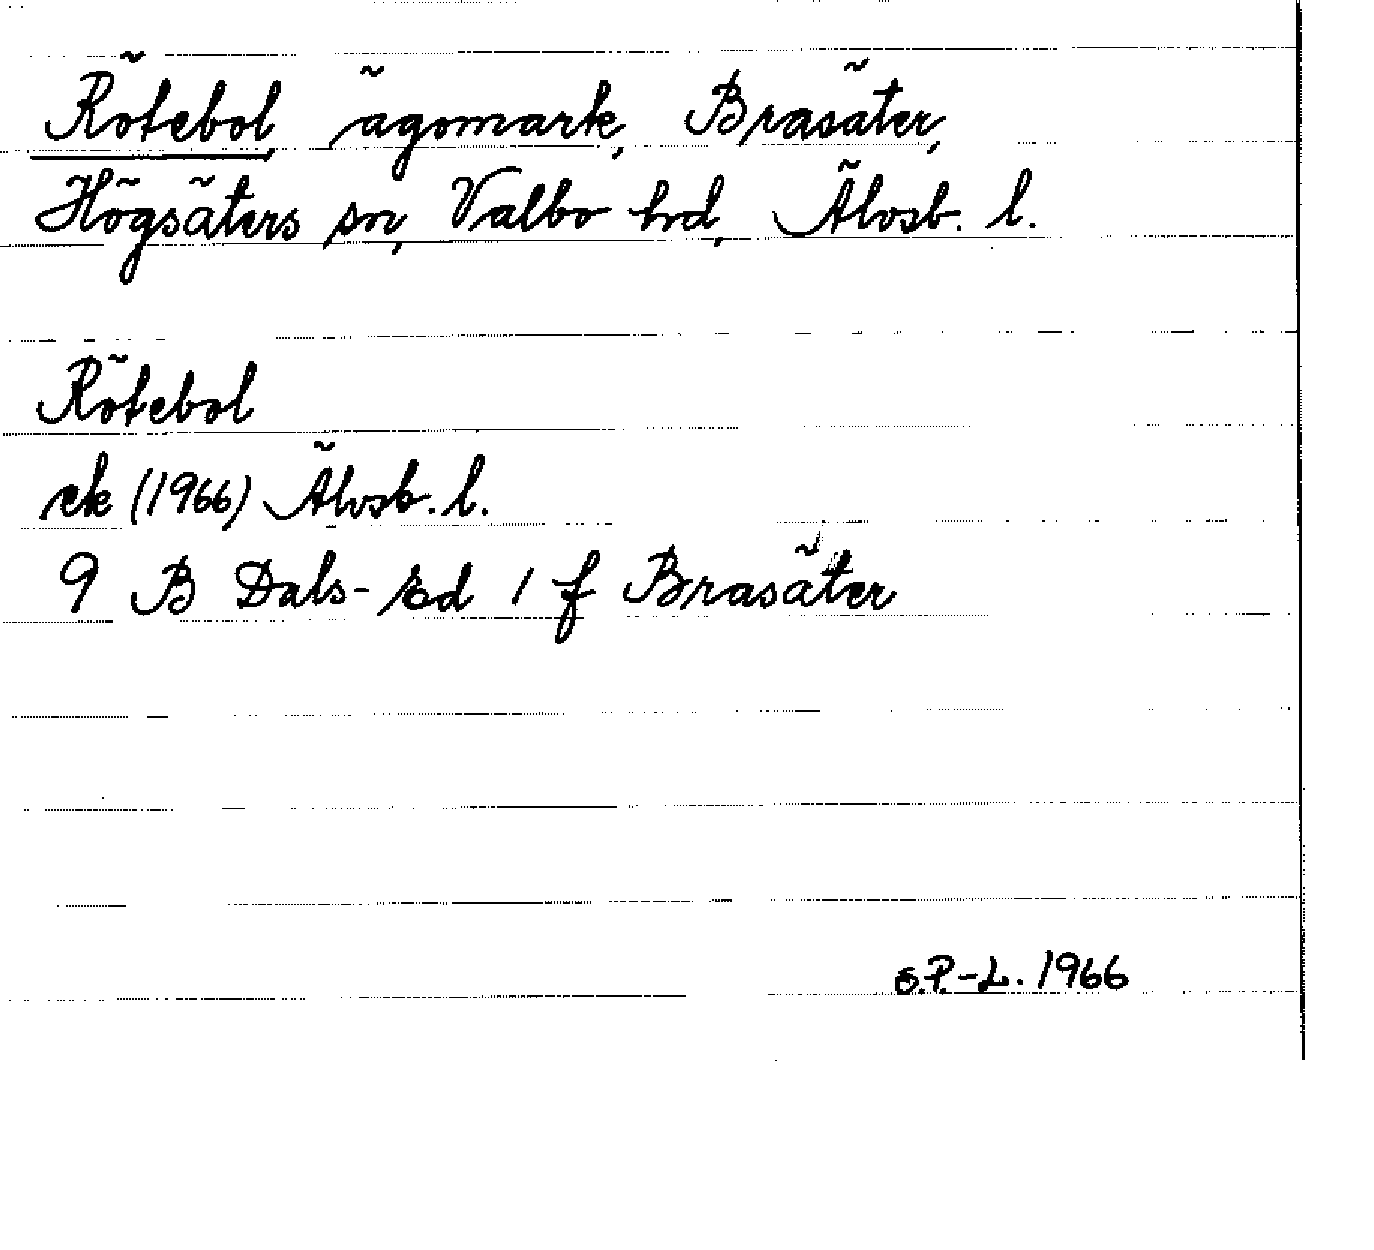 Rötebol, ägomark, Brasäter,
Högsäters sn, Valbo hd, Älvsb. l.
Rötebol
ek (1966) Älvsb. l.
9 B Dals-Ed 1 f Brasäter
S.P-L. 1966